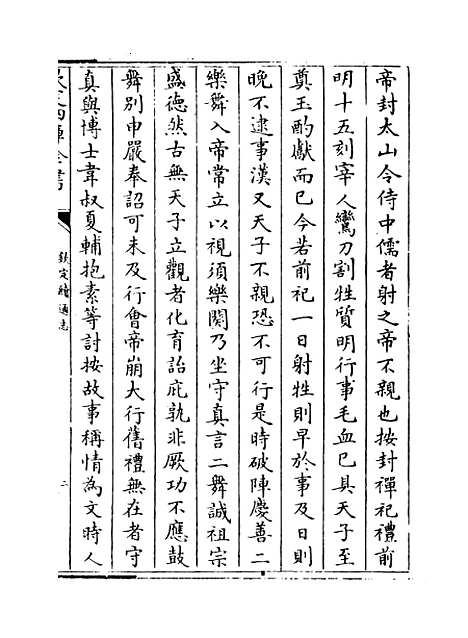 帝封太山令侍中儒者射之帝不親也按封禪祀禮前
明十五刻宰人鸞刀割牲質明行事毛血已具天子至
奠玉酌獻而已今若前祀一日射牲則早於事及日則
晚不逮事漢又天子不親恐不可行是時破陣慶善二
樂舞入帝常立以視須樂闋乃坐守真言二舞誠祖宗
盛德然古無天子立觀者化育詒庇孰非厥功不應鼓
舞別申嚴奉詔可未及行會帝崩大行舊禮無在者守
真與博士韋叔夏輔抱素等討按故事稱情為文時人
欽定四庫全書
欽定續通志
二